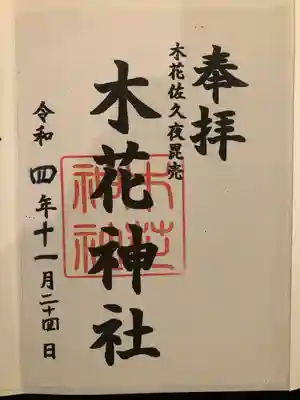 奉拝
木花佐久夜毘売
木花神社
木花神社
令和四年十一月二十四日